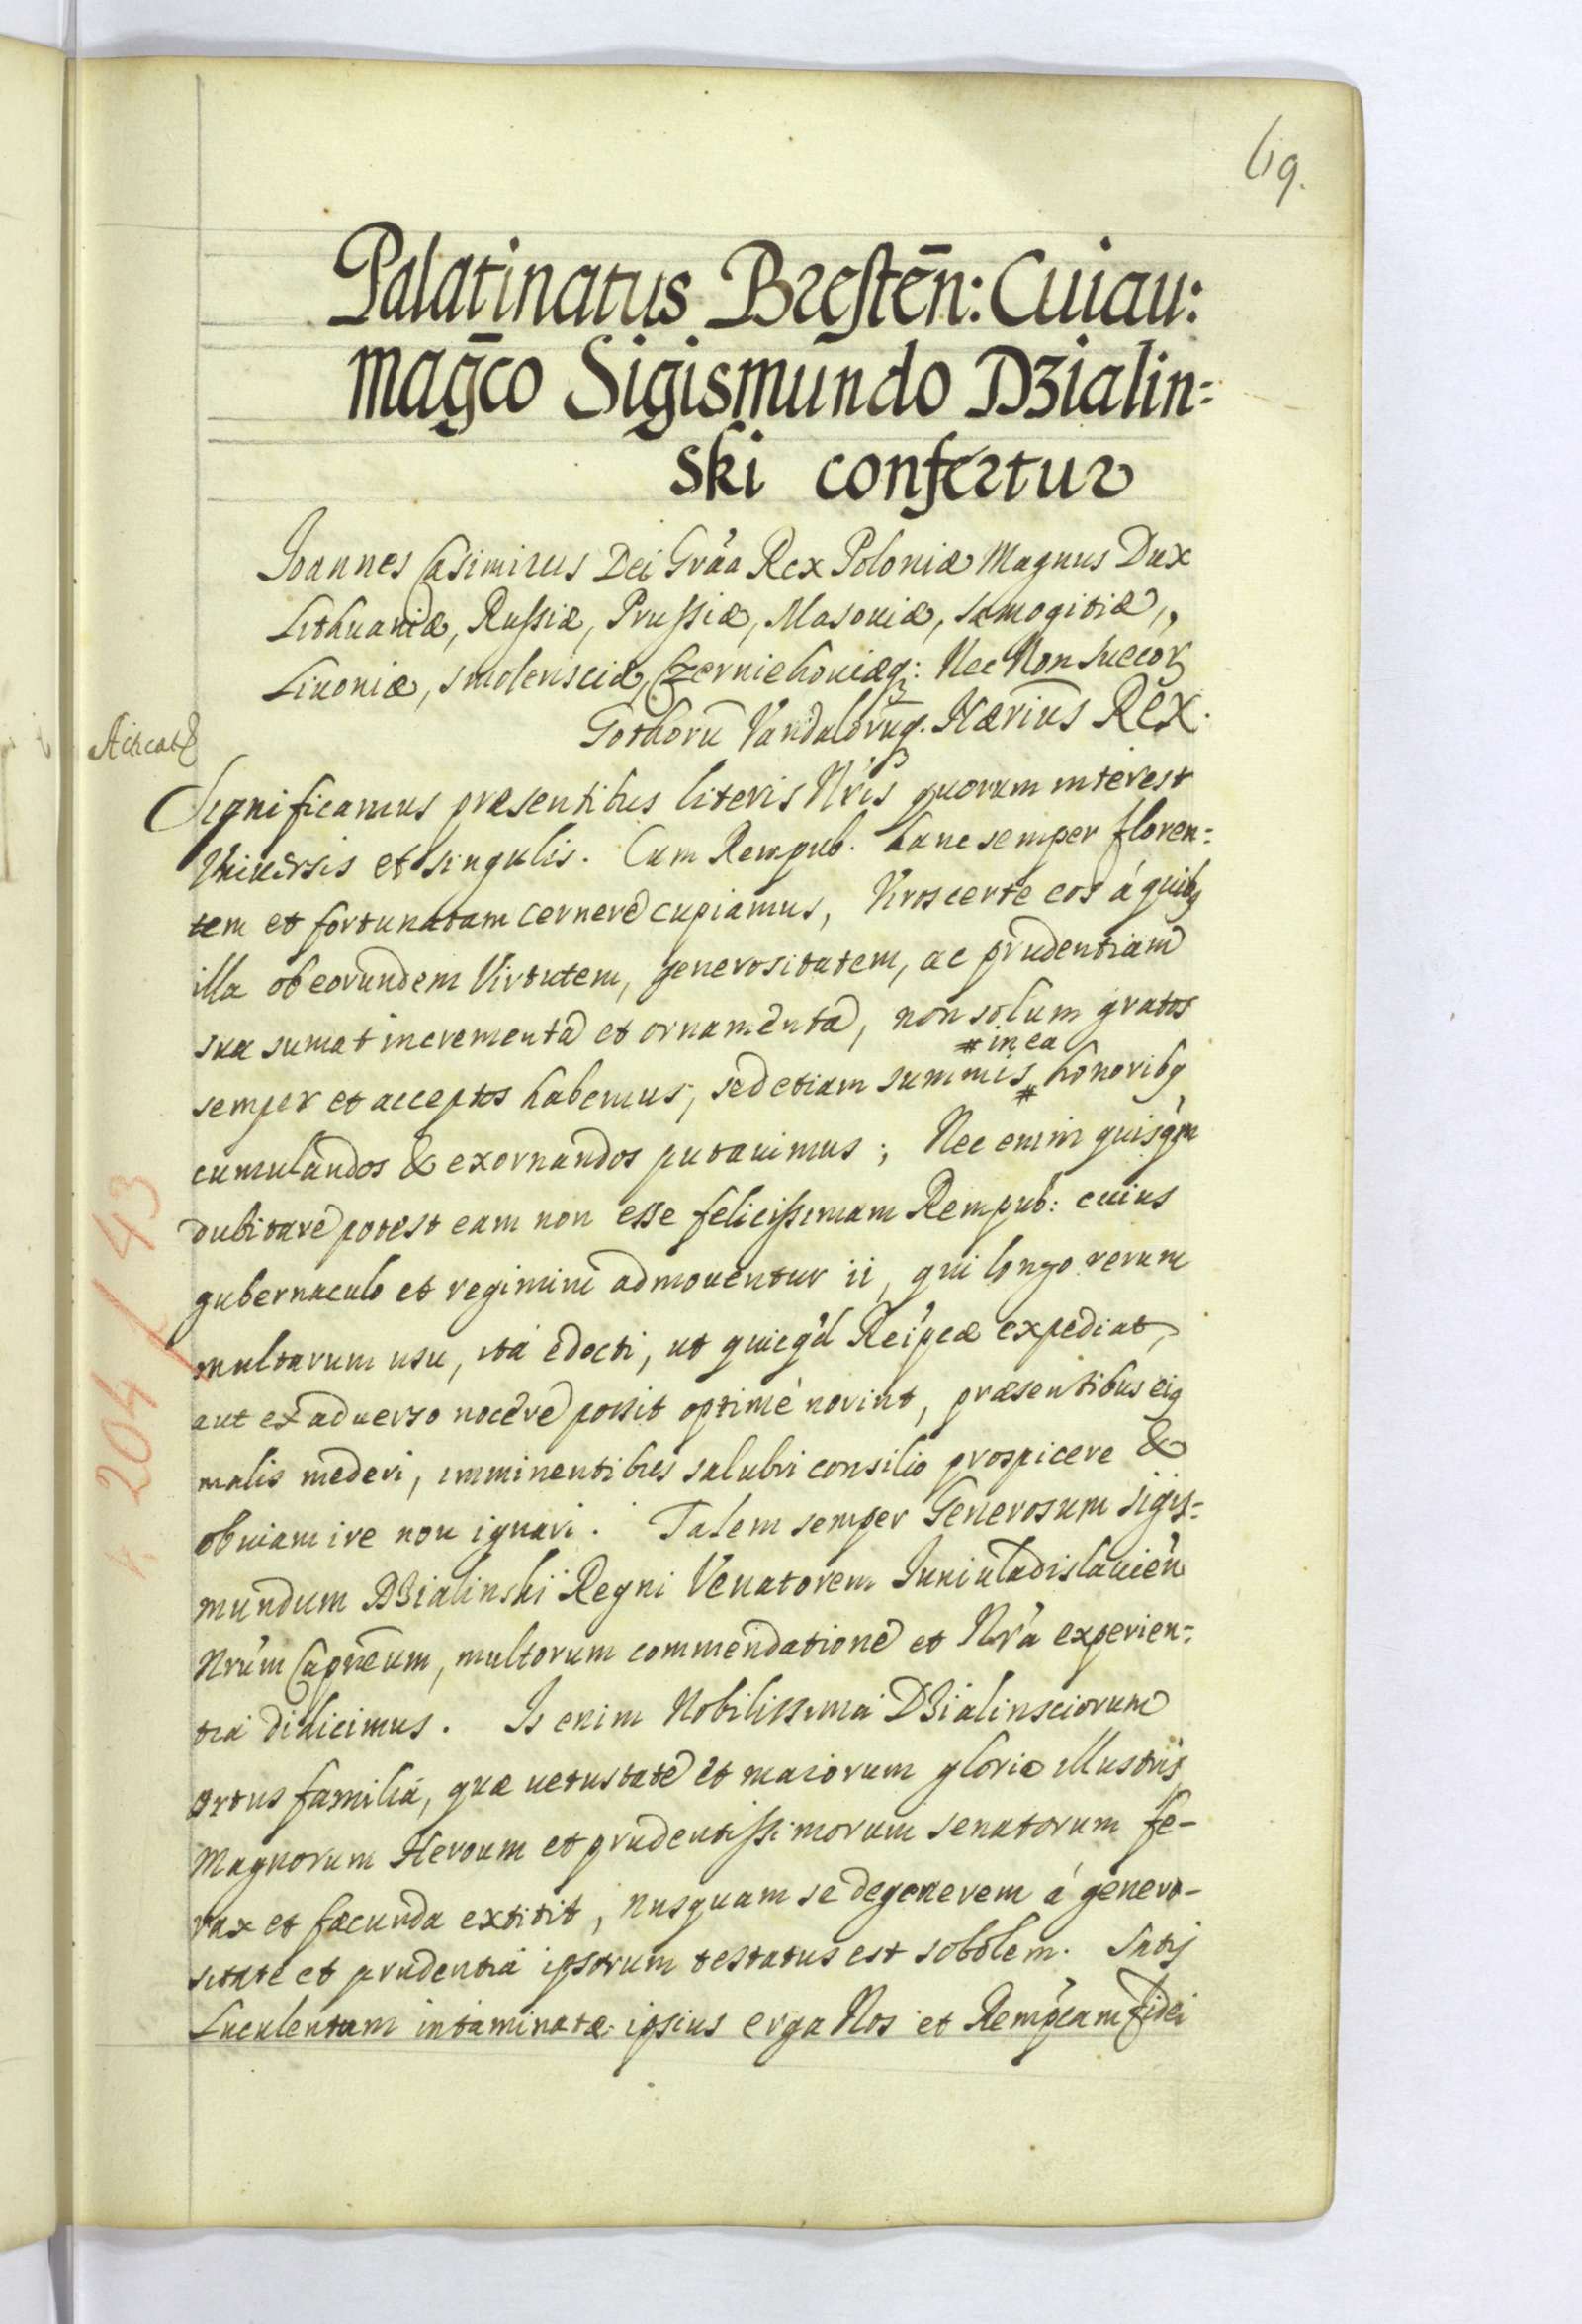 69.
Palatinatus Brestēn: Cuiau:
magc̄o Sigismundo Dzialin=
ski confertur
Joannes Casimirus Dei Grãa Rex Poloniæ Magnus Dux
Lithuaniæ, Russiæ, Prussiæ, Masoviæ, Samogitiæ,,
Livoniæ, Smolensciæ, Czerniehoviæq: Nec Non Suecorꝝ
Gothorū Vandalorūq. Hærius Rex.
Significamus præsentibus literis Nris quorum interest
Vniversis et singulis. Cum Rempub. hanc semper floren=
tem et fortunatam cernere cupiamus, Viros certe eos á quibꝫ
illa ob eorundem Virtutem, generositatem, ac prudentiam
sua sumat incrementa et ornamenta, non solum gratos
# in ea
semper et acceptos habemus, sed etiam summis # honoribꝫ
cumulandos & exornandos putavimus; Nec enim quisqm
dubitare potest eam non esse felicissimam Rempub: cuius
gubernaculo et regimini admouentur ii, qui longo rerum
multarum usu, ita edocti, ut quicqd Reipcæ expediat,
aut ex adverso nocere possit optimè norint, præsentibus eiꝫ
malis mederi, imminentibus salubri consilio prospicere &
obuiam ire non ignari. Talem semper Generosum Sigis=
mundum Dzialinski Regni Venatorem Juniuladislauień
Nrum Capneum, multorum commendatione et Nrá experien=
tiá didicimus. Is enim Nobilissimá Dzialinsciorum
ortus familiá, quæ uetustate et maiorum gloria illustris
Magnorum Heroum et prudentissimorum senatorum fe-
rax et fæcunda extitit, nusquam se degenerem á genero-
sitate et prudentiá ipsorum testatus est sobolem. Satis
Luculentam intaminatæ ipsius erga Nos et Rempcam fidei
204 / 43